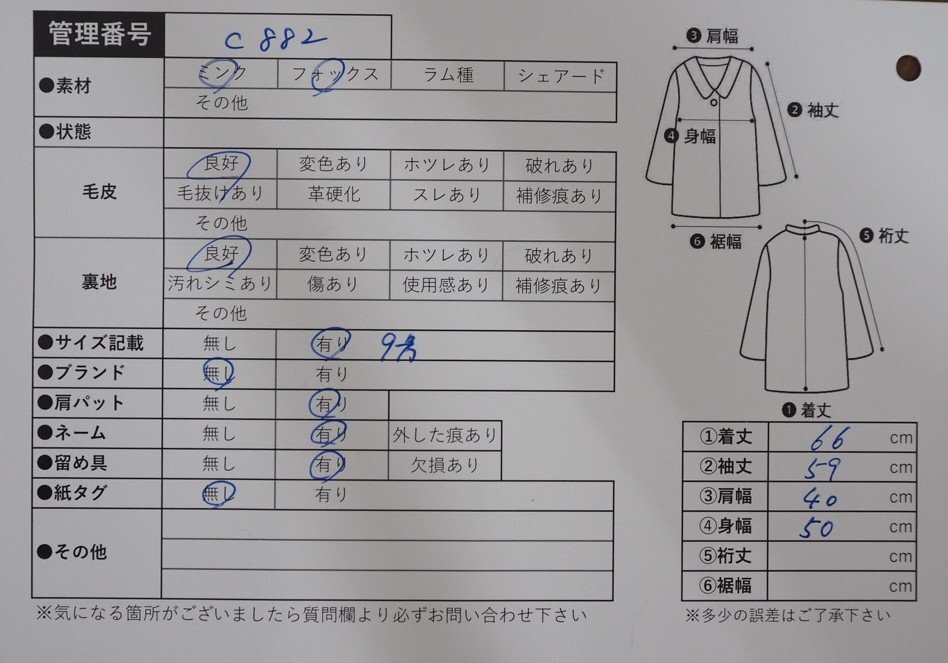 管理番号 C 882
●素材 ミンク フォックス ラム種 シェアード
その他
●状態
毛皮 良好 変色あり ホツレあり 破れあり
毛抜けあり 革硬化 スレあり 補修痕あり
その他
裏地 良好 変色あり ホツレあり 破れあり
汚れシミあり 傷あり 使用感あり 補修痕あり
その他
●サイズ記載 無し 有り 9号
●ブランド 無し 有り
●肩パット 無し 有り
●ネーム 無し 有り 外した痕あり
●留め具 無し 有り 欠損あり
●紙タグ 無し 有り
●その他
※気になる箇所がございましたら質問欄より必ずお問い合わせ下さい
❸肩幅
❷袖丈
❹身幅
❻裾幅
❺裄丈
❶着丈
①着丈 66 cm
②袖丈 59 cm
③肩幅 40 cm
④身幅 50 cm
⑤裄丈 cm
⑥裾幅 cm
※多少の誤差はご了承下さい